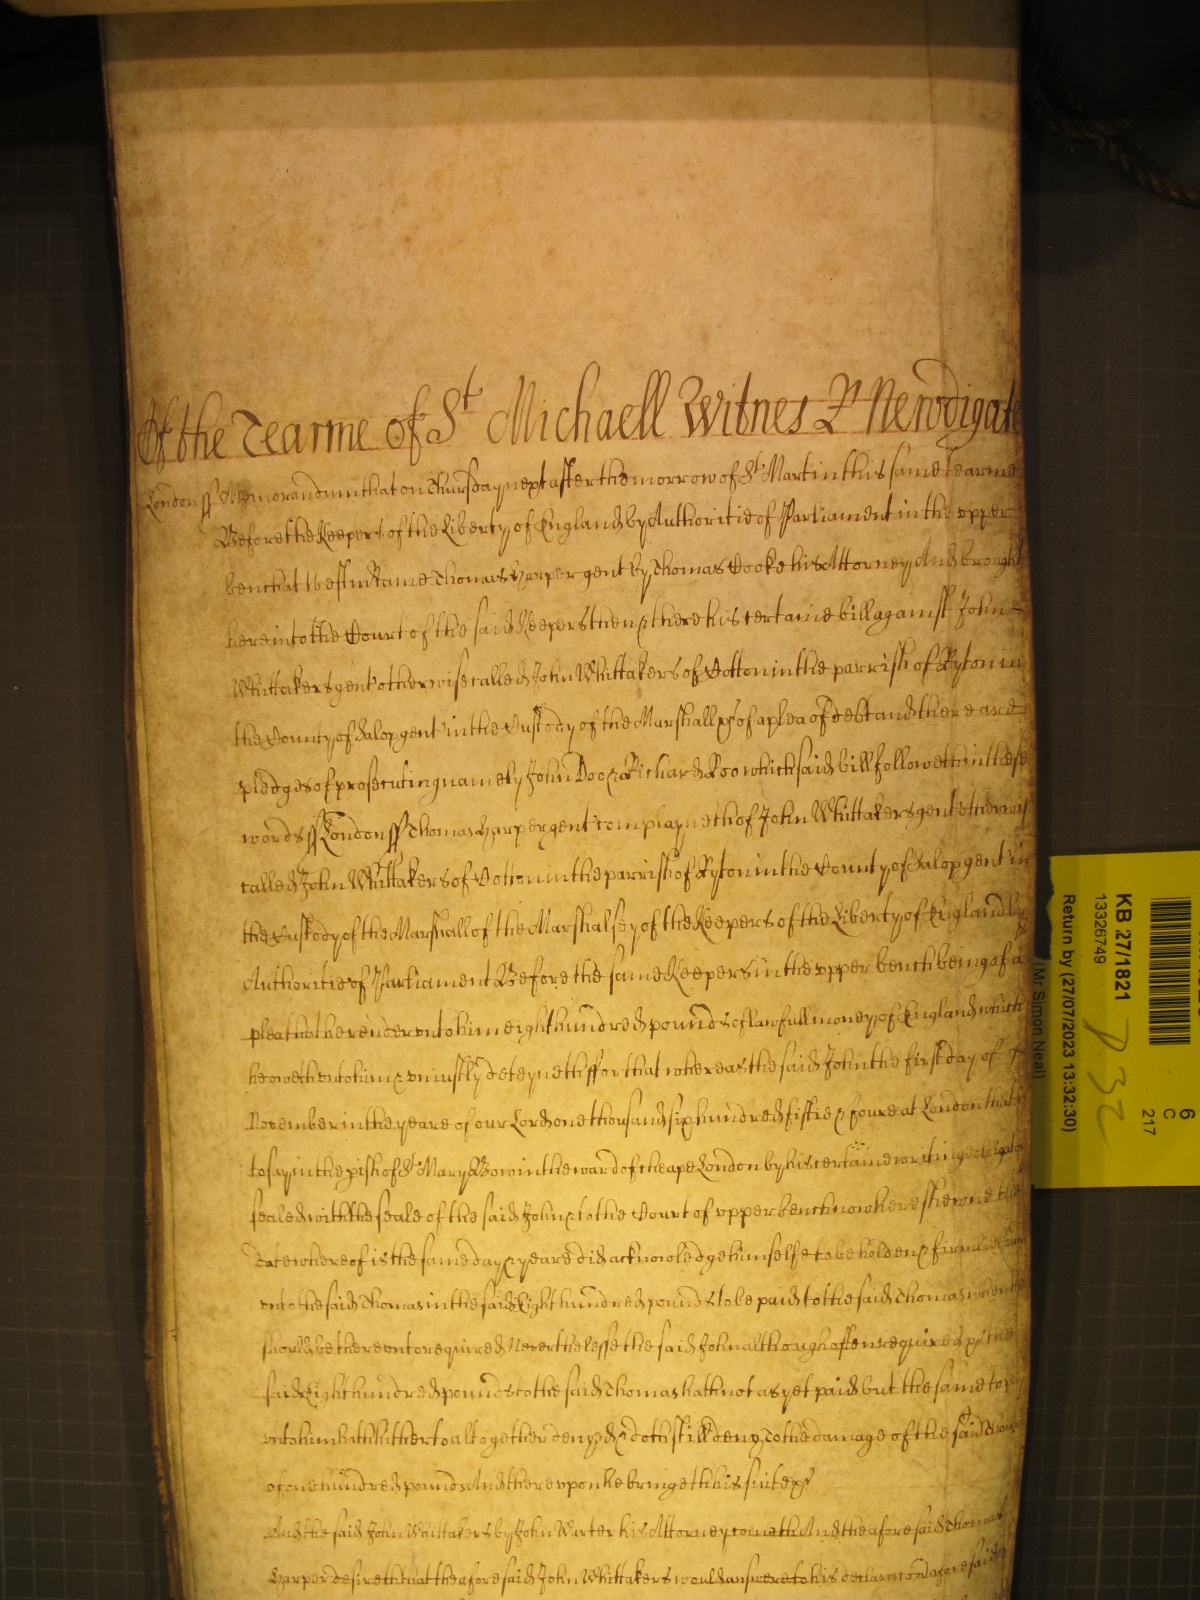 Of the Tearme of St Michaell Witnes R Newdigate
London ss Memorandum that on Thursday next after the morrow of St Martin this same Tearme
Before the Keepers of the Liberty of England by Authoritie of Parliament in the upper
bench at Westm̃ Came Thomas Harper gent by Thomas Cooke his Attorney And brought
here into the Court of the said Keepers then & there his certaine bill against John
Whittakers gent otherwise called John Whittakers of Cotton in the parrish of Ryton in
the County of Salop gent in the Custody of the Marshall &c of a plea of debt and there are
pledges of prosecuting namely John Doo & Richard Roo which said bill followeth in these
words ss London ss Thomas Harper gent complayneth of John Whittakers gent otherwise
called John Whittakers of Cotton in the parrish of Ryton in the County of Salop gent in
the Custody of the Marshall of the Marshalsey of the Keepers of the Liberty of England by
Authoritie of Parliament Before the same Keepers in the upper bench being of a
plea that he render unto him eight hundred pounds of lawfull money of England which
he oweth unto him & uniustly deteyneth ffor that whereas the said John the first day of
November in the yeare of our Lord one thousand six hundred fiftie & foure at London that is
to say in the pish of St Mary Bow in the ward of cheape London by his certaine writing obligatory
sealed with the seale of the said John & to the Court of upper bench now here shewne the
date whereof is the same day & yeare did acknowledge himselfe to be holden & firmely bound
unto the said Thomas in the said Eight hundred pounds to be paid to the said Thomas when he
should be thereunto required Neverthelesse the said John although often required &c the
said Eight hundred pounds to the said Thomas hath not as yet paid but the same to pay
unto him hath hitherto altogether denyed & doth still deny To the damage of the said Thomas
of one hundred pounds And thereupon he bringeth his suite &c
And the said John Whittakers by John Warter his Attorney cometh And the aforesaid Thomas
Harper desireth that the aforesaid John Whittakers would answere to his declaracon aforesaid
KB 27/1821
13326749
Return by (27/07/2023 13:32:30)
(Mr Simon Neal)
6
C
217